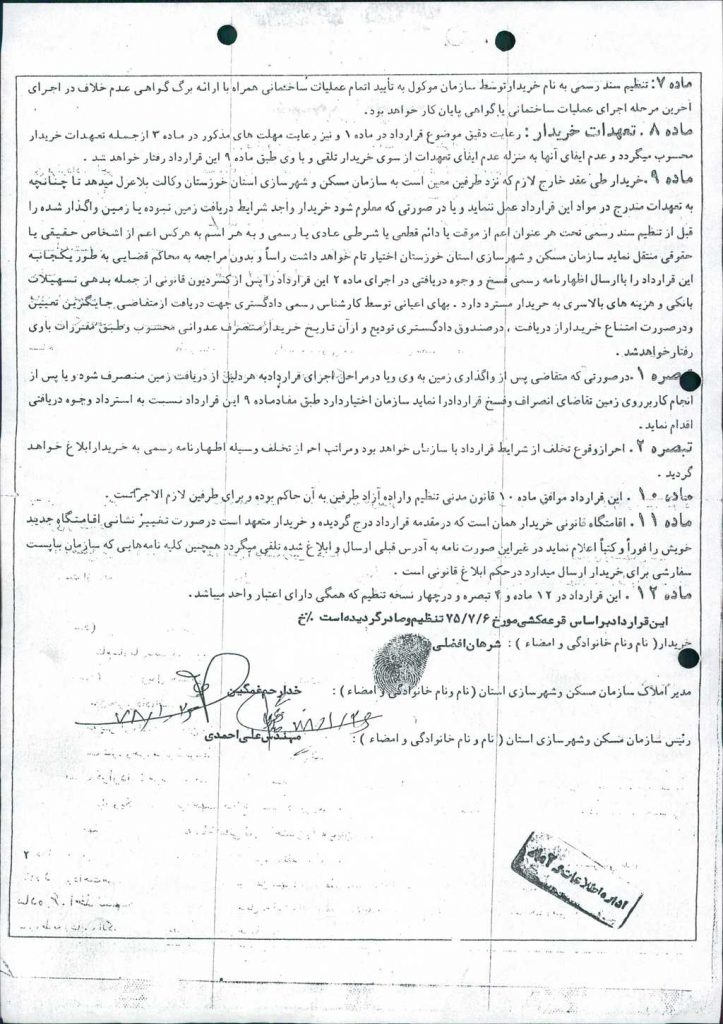 ماده ۷: تنظیم سند رسمی به نام خریدار توسط سازمان موکول به تأیید اتمام عملیات ساختمانی همراه با ارائه برگ گواهی عدم خلاف در اجرای
آخرین مرحله اجرای عملیات ساختمانی یا گواهی پایان کار خواهد بود.
ماده ۸. تعهدات خریدار: رعایت دقیق موضوع قرارداد در ماده ۱ و نیز رعایت مهلت های مذکور در ماده ۳ از جمله تعهدات خریدار
محسوب میگردد و عدم ایفای آنها به منزله عدم ایفای تعهدات از سوی خریدار تلقی و با وی طبق ماده ۹ این قرارداد رفتار خواهد شد.
ماده ۹. خریدار طی عقد خارج لازم که نزد طرفین معین است به سازمان مسکن و شهرسازی استان خوزستان وکالت بلاعزل میدهد تا چنانچه
به تعهدات مندرج در مواد این قرارداد عمل ننماید و یا در صورتی که معلوم شود خریدار واجد شرایط دریافت زمین نبوده یا زمین واگذار شده را
قبل از تنظیم سند رسمی تحت هر عنوان اعم از موقت یا دائم قطعی یا شرطی عادی یا رسمی و به هر اسم به هرکس اعم از اشخاص حقیقی یا
حقوقی منتقل نماید سازمان مسکن و شهرسازی استان خوزستان اختیار تام خواهد داشت راساً و بدون مراجعه به محاکم قضایی به طور یکجانبه
این قرارداد را با ارسال اظهارنامه رسمی فسخ و وجوه دریافتی در اجرای ماده ۲ این قرارداد را پس از کسر دیون قانونی از جمله بدهی تسهیلات
بانکی و هزینه های بالاسری به خریدار مسترد دارد. بهای اعیانی توسط کارشناس رسمی دادگستری جهت دریافت از متقاضی جایگزین تعیین
و در صورت امتناع خریدار از دریافت، در صندوق دادگستری تودیع و از آن تاریخ خریدار متصرف عدوانی محسوب و طبق مقررات با وی
رفتار خواهد شد.
تبصره ۱. در صورتی که متقاضی پس از واگذاری زمین به وی و یا در مراحل اجرای قرارداد به هر دلیل از دریافت زمین منصرف شود و یا پس از
انجام کار بر روی زمین تقاضای انصراف و فسخ قرارداد را نماید سازمان اختیار دارد طبق مفاد ماده ۹ این قرارداد نسبت به استرداد وجوه دریافتی
اقدام نماید.
تبصره ۲. احراز وقوع تخلف از شرایط قرارداد با سازمان خواهد بود و مراتب احراز تخلف وسیله اظهارنامه رسمی به خریدار ابلاغ خواهد
گردید.
ماده ۱۰. این قرارداد موافق ماده ۱۰ قانون مدنی تنظیم و اراده آزاد طرفین به آن حاکم بوده و برای طرفین لازم الاجراست.
ماده ۱۱. اقامتگاه قانونی خریدار همان است که در مقدمه قرارداد درج گردیده و خریدار متعهد است در صورت تغییر نشانی اقامتگاه جدید
خویش را فوراً و کتباً اعلام نماید در غیر این صورت نامه به آدرس قبلی ارسال و ابلاغ شده تلقی میگردد همچنین کلیه نامه‌هایی که سازمان با پست
سفارشی برای خریدار ارسال میدارد در حکم ابلاغ قانونی است.
ماده ۱۲. این قرارداد در ۱۲ ماده و ۴ تبصره و در چهار نسخه تنظیم که همگی دارای اعتبار واحد میباشد.
این قرارداد بر اساس قرعه کشی مورخ ۷۵/۷/۶ تنظیم و صادر گردیده است %خ
خریدار (نام و نام خانوادگی و امضاء): شرهان افضلی
مدیر املاک سازمان مسکن و شهرسازی استان (نام و نام خانوادگی و امضاء): خدارحم غمگین
رئیس سازمان مسکن و شهرسازی استان (نام و نام خانوادگی و امضاء): مهندس علی احمدی
اداره اطلاعات و آمار